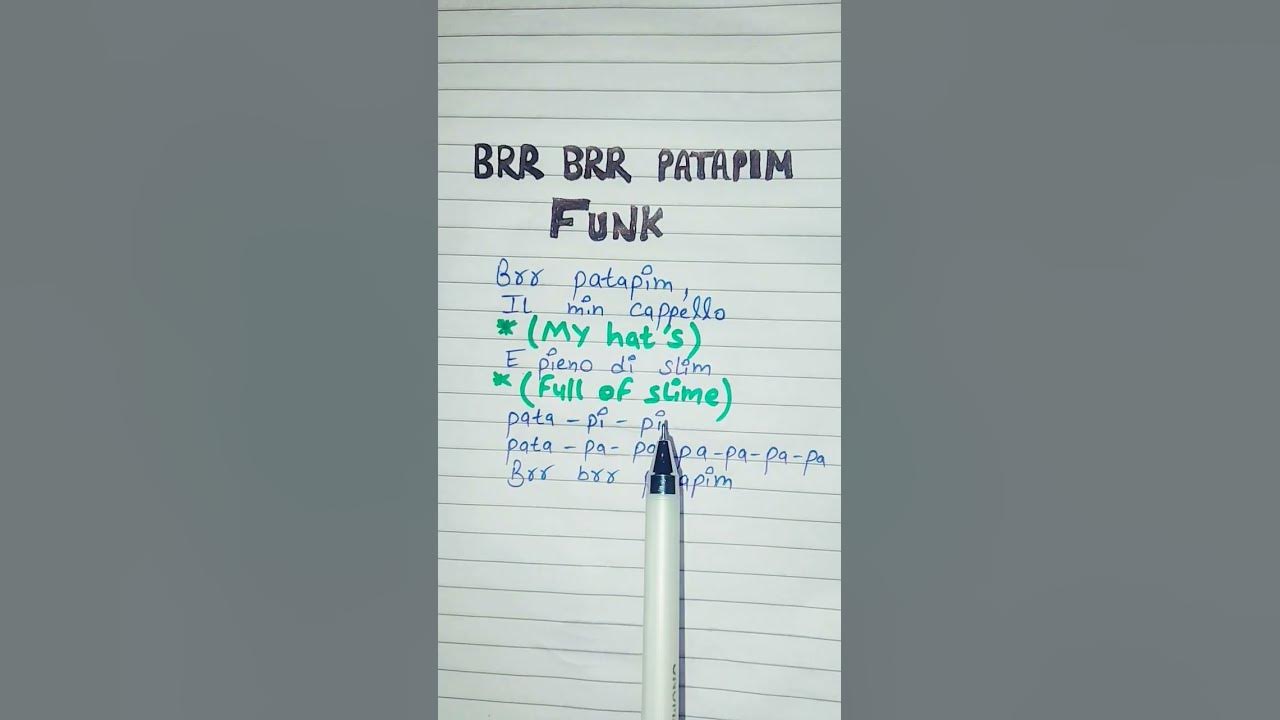 BRR BRR PATAPIM
FUNK
Brr patapim,
IL min cappello
* (MY hat's)
E pieno di slim
* (full of slime)
pata - pi - pi
pata - pa - pa - pa - pa - pa - pa
Brr brr patapim